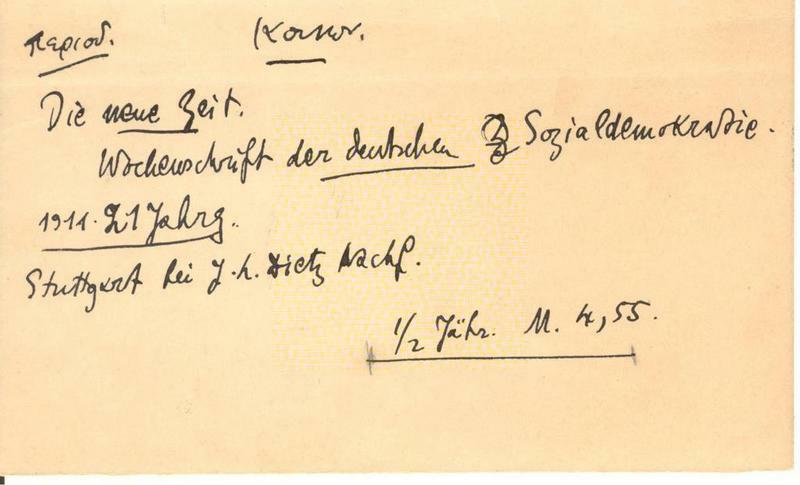 περιοδ. Κοινων.
Die neue Zeit.
Wochenschrift der deutschen Sozialdemokratie.
1911. 21 Jahrg.
Stuttgart bei J. H. Dietz Nachf.
1/2 Jähr. M. 4,55.